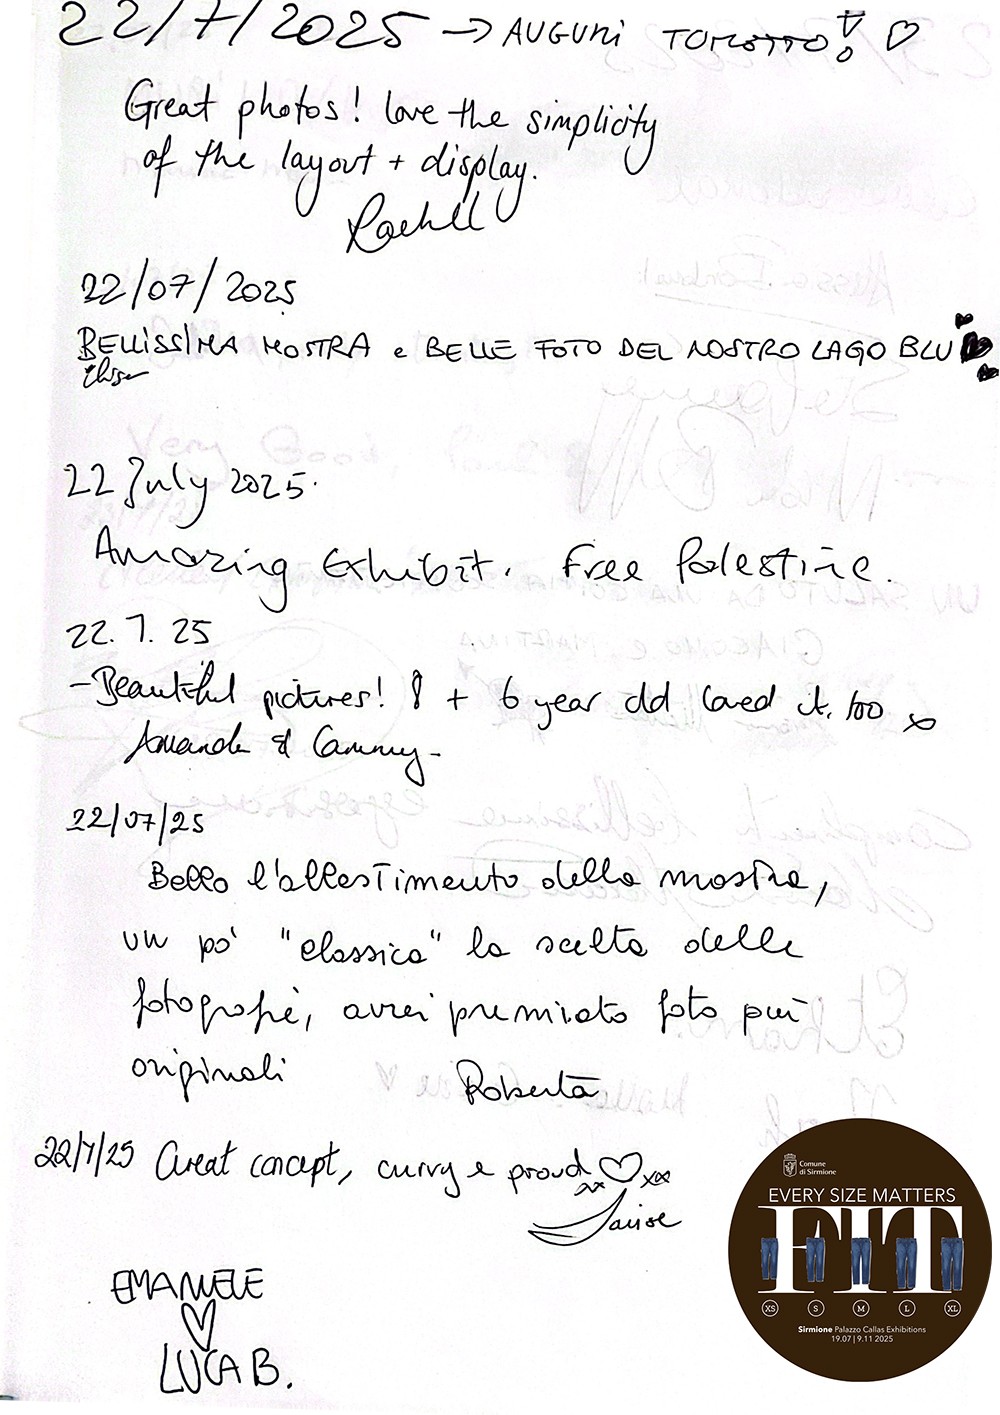 22/7/2025 → AUGURI TOMOTTO! ♡
Great photos! love the simplicity
of the layout + display.
Rachel
22/07/2025
BELLISSIMA MOSTRA e BELLE FOTO DEL NOSTRO LAGO BLU
22 July 2025.
Amazing Exhibit. Free Palestine.
22.7.25
- Beautiful pictures! 8 + 6 year old loved it too x
Amanda & Cammy -
22/07/25
Bello l'allestimento della mostra,
un po' "classica" la scelta delle
fotografie, avrei premiato foto più
originali
Roberta
22/7/25 Great concept, curvy e proud ♡ xxx
Louise
EMANUELE
♡
LUCA B.
Comune
di Sirmione
EVERY SIZE MATTERS
FIT
XS S M L XL
Sirmione Palazzo Callas Exhibitions
19.07 | 9.11 2025